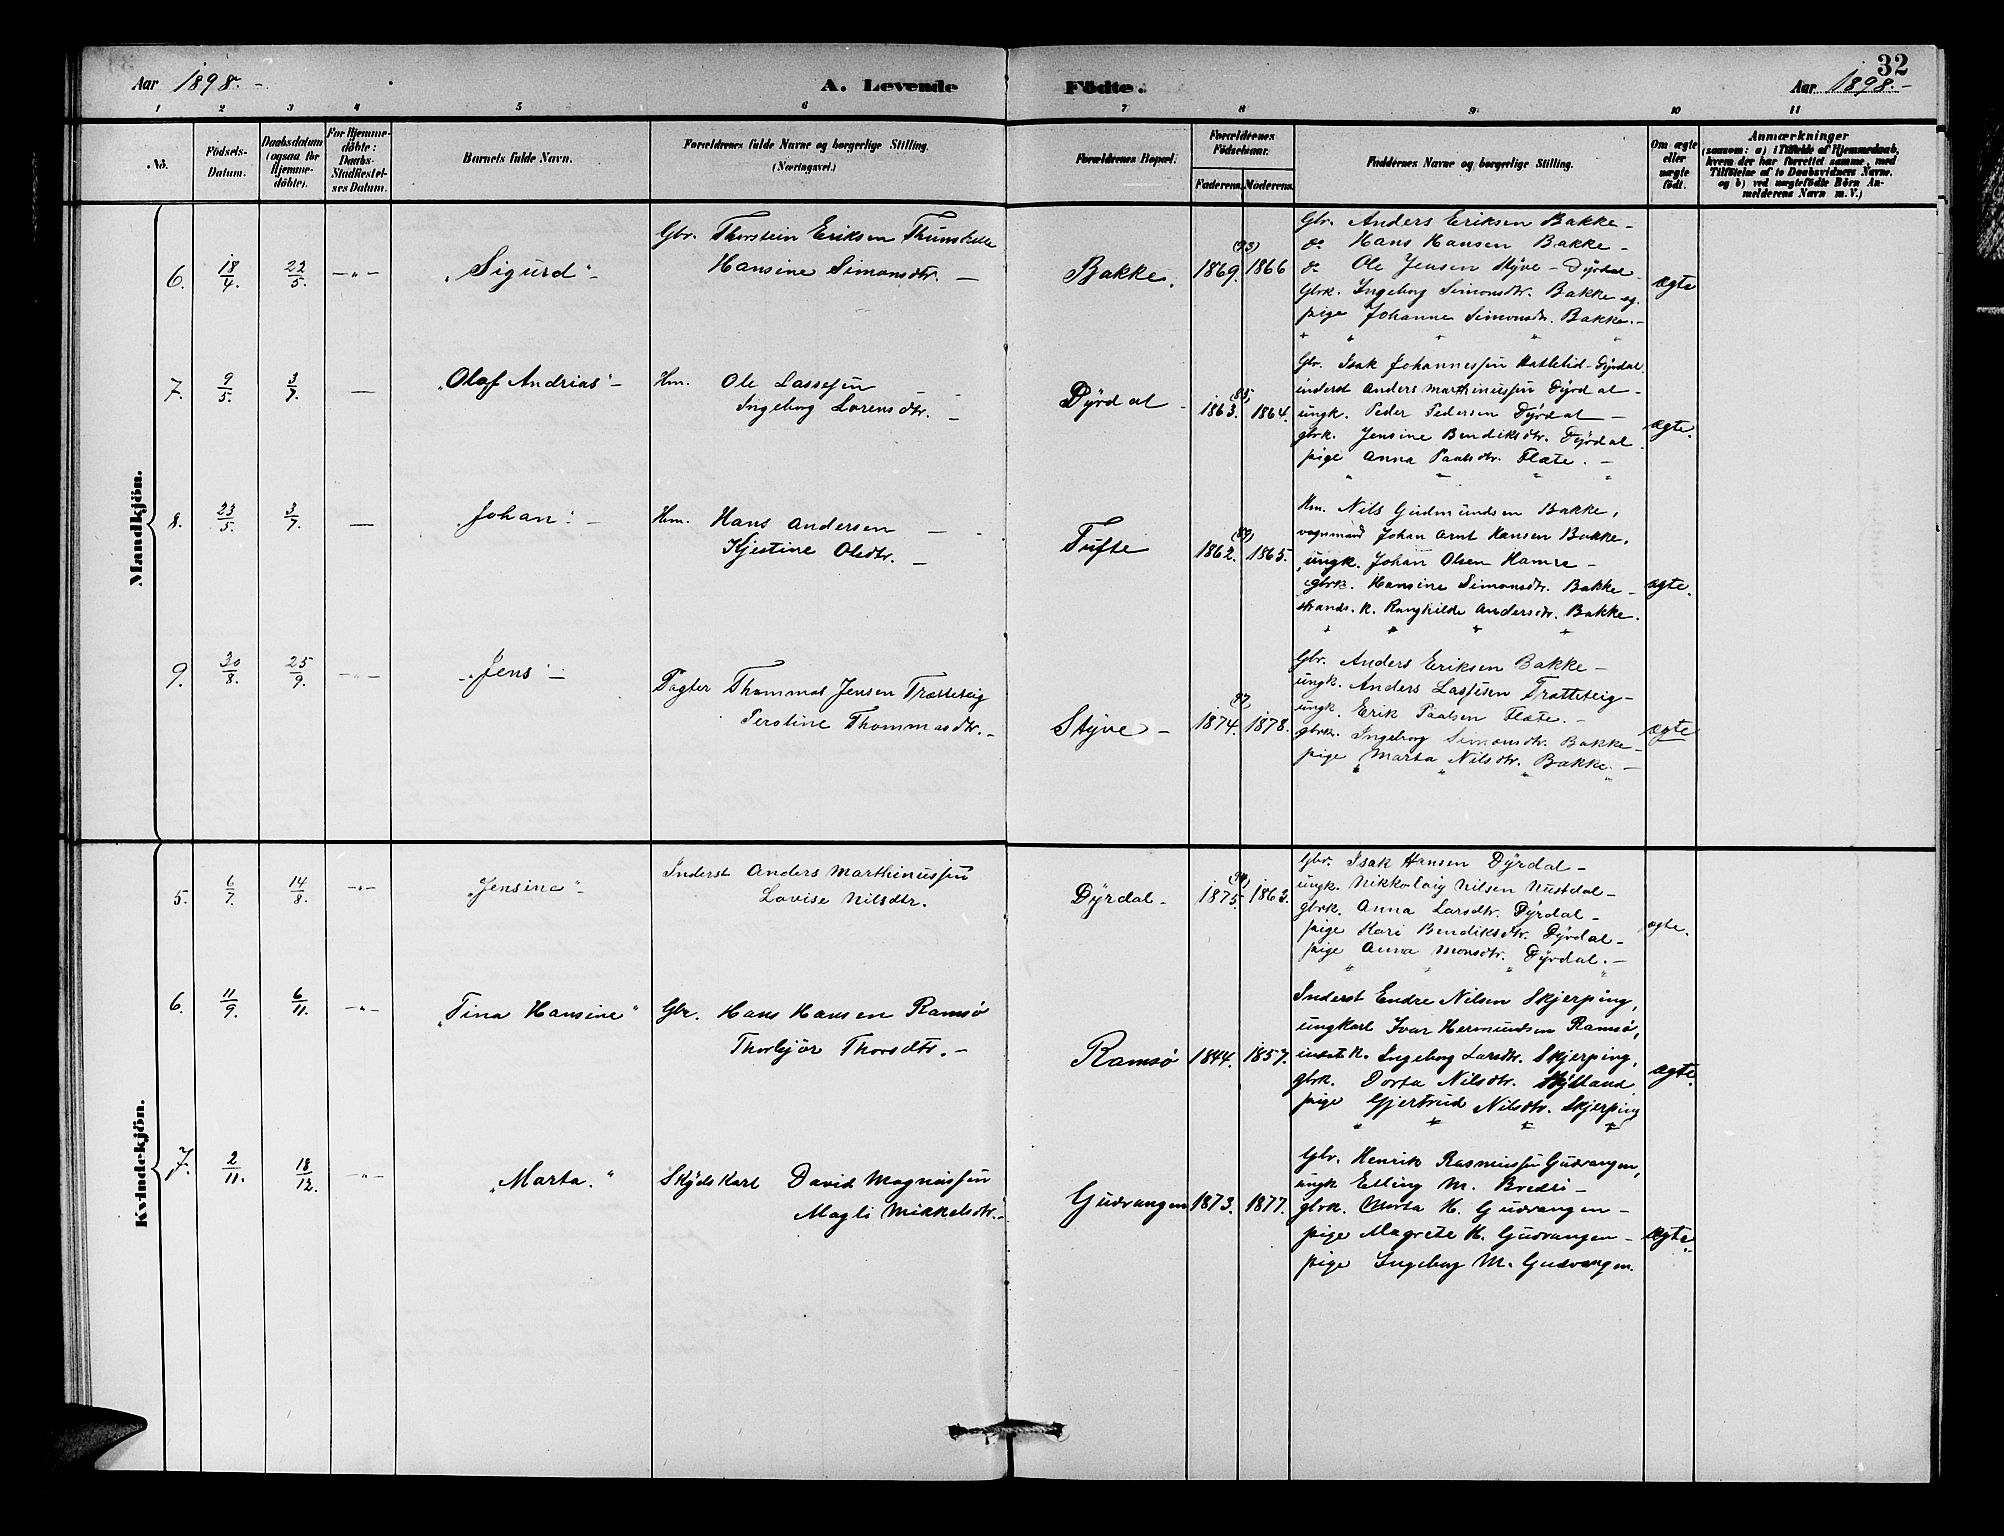 32
Aar 1898. A. Levende Födte. Aar 1898.
1 2 3 4 5 6 7 8 9 10 11
No. Födsels-Datum. Daabsdatum (ogsaa for Hjemmedöbte). For Hjemmedöbte: Daabs-Stadfæstelses Datum. Barnets fulde Navn. Forældrenes fulde Navne og borgerlige Stilling. (Næringsvei.) Forældrenes Bopæl. Forældrenes Födselsaar. Faderens. Moderens. Faddernes Navne og borgerlige Stilling. Om ægte eller uægte födt. Anmærkninger (saasom: a) i Tilfælde af Hjemmedaab, hvem der har forrettet samme, med Tilföielse af to Daabsvidners Navne. og b) ved uægtefödte Börn Anmelderens Navn m. V.)
Mandkjön.
6. 18/4 22/5. —"— "Sigurd"
Gbr. Thorstein Eriksen
Hansine Simonsdtr. —
Bakke. 1869. (93) 1866
Gbr. Anders Eriksen Bakke —
do Hans Hansen Bakke —
do Ole Jensen Styve — Dÿrdal
Gbrk. Ingeborg Simonsdtr. Bakke og
pige Johanne Simonsdtr. Bakke. —
ægte
7. 9/5. 3/7. — "Olaf Andrias" —
Hm. Ole Lassesen
Ingeborg Larensdtr. —
Dÿrdal — 1863. (85) 1864.
Gbr. Isak Johannessen — Dÿrdal
inderst Anders Marthinussen Dÿrdal —
ungk. Peder Pedersen Dÿrdal —
gbrk. Jensine Bendiksdtr. Dÿrdal
pige Anna Paalsdtr. Flate. —
ægte.
8. 23/5. 3/7. — "Johan" —
Hm. Hans Andersen —
Kjestine Olsdtr. —
Tufte 1862. (89) 1865.
Hm. Nils Gudmundsen Bakke,
vognmand Johan Arnt Hansen Bakke,
ungk. Johan Olsen Hamre —
gbrk. Hansine Simonsdtr. Bakke —
strands. k. Ranghilde Andersdtr. Bakke.
ægte.
9. 30/8. 25/9. —"— "Jens" —
Pagter Thommas Jensen Trætteteig
Perotine Thommasdtr. —
Styve — 1874. (97) 1878.
Gbr. Anders Eriksen Bakke —
ungk. Anders Lassesen Trætteteig —
ungk. Erik Paalsen Flate. —
gbrk. Ingeborg Simonsdtr. Bakke —
pige Marta Nilsdtr. Bakke —
ægte
Kvindekjön.
5. 6/7. 14/8. —"— "Jensine" —
Inderst Anders Marthinussen
Lovise Nilsdtr.
Dÿrdal — 1875. 1863.
Gbr. Isak Hansen Dÿrdal —
ungk. Nikkolaig Nilsen Nustdal —
gbrk. Anna Larsdtr. Dÿrdal —
pige Kari Bendiksdtr. Dÿrdal —
pige Anna Monsdtr. Dÿrdal. —
ægte.
6. 11/9. 6/11. —"— "Tina Hansine"
Gbr. Hans Hansen Ramsö
Thorbjör Thorsdtr. —
Ramsö 1844. 1857.
Inderst Endre Nilsen Skjerping,
ungkarl Ivar Hermundsen Ramsö,
indst k. Ingeborg Larsdtr. Skjerping,
gbrk. Dorta Nilsdtr.
pige Gjertrud Nilsdtr. Skjerping
ægte.
7. 2/11. 18/12. —"— "Marta."
Skÿdskarl David Magnussen
Magli Mikkelsdtr. —
Gudvangen 1873. 1877.
Gbr. Henrik Rasmussen Gudvangen,
ungk Elling M. Bredei —
gbrk. Dorta H. Gudvangen —
pige Magrete H. Gudvangen —
pige Ingeborg M. Gudvangen.
ægte.